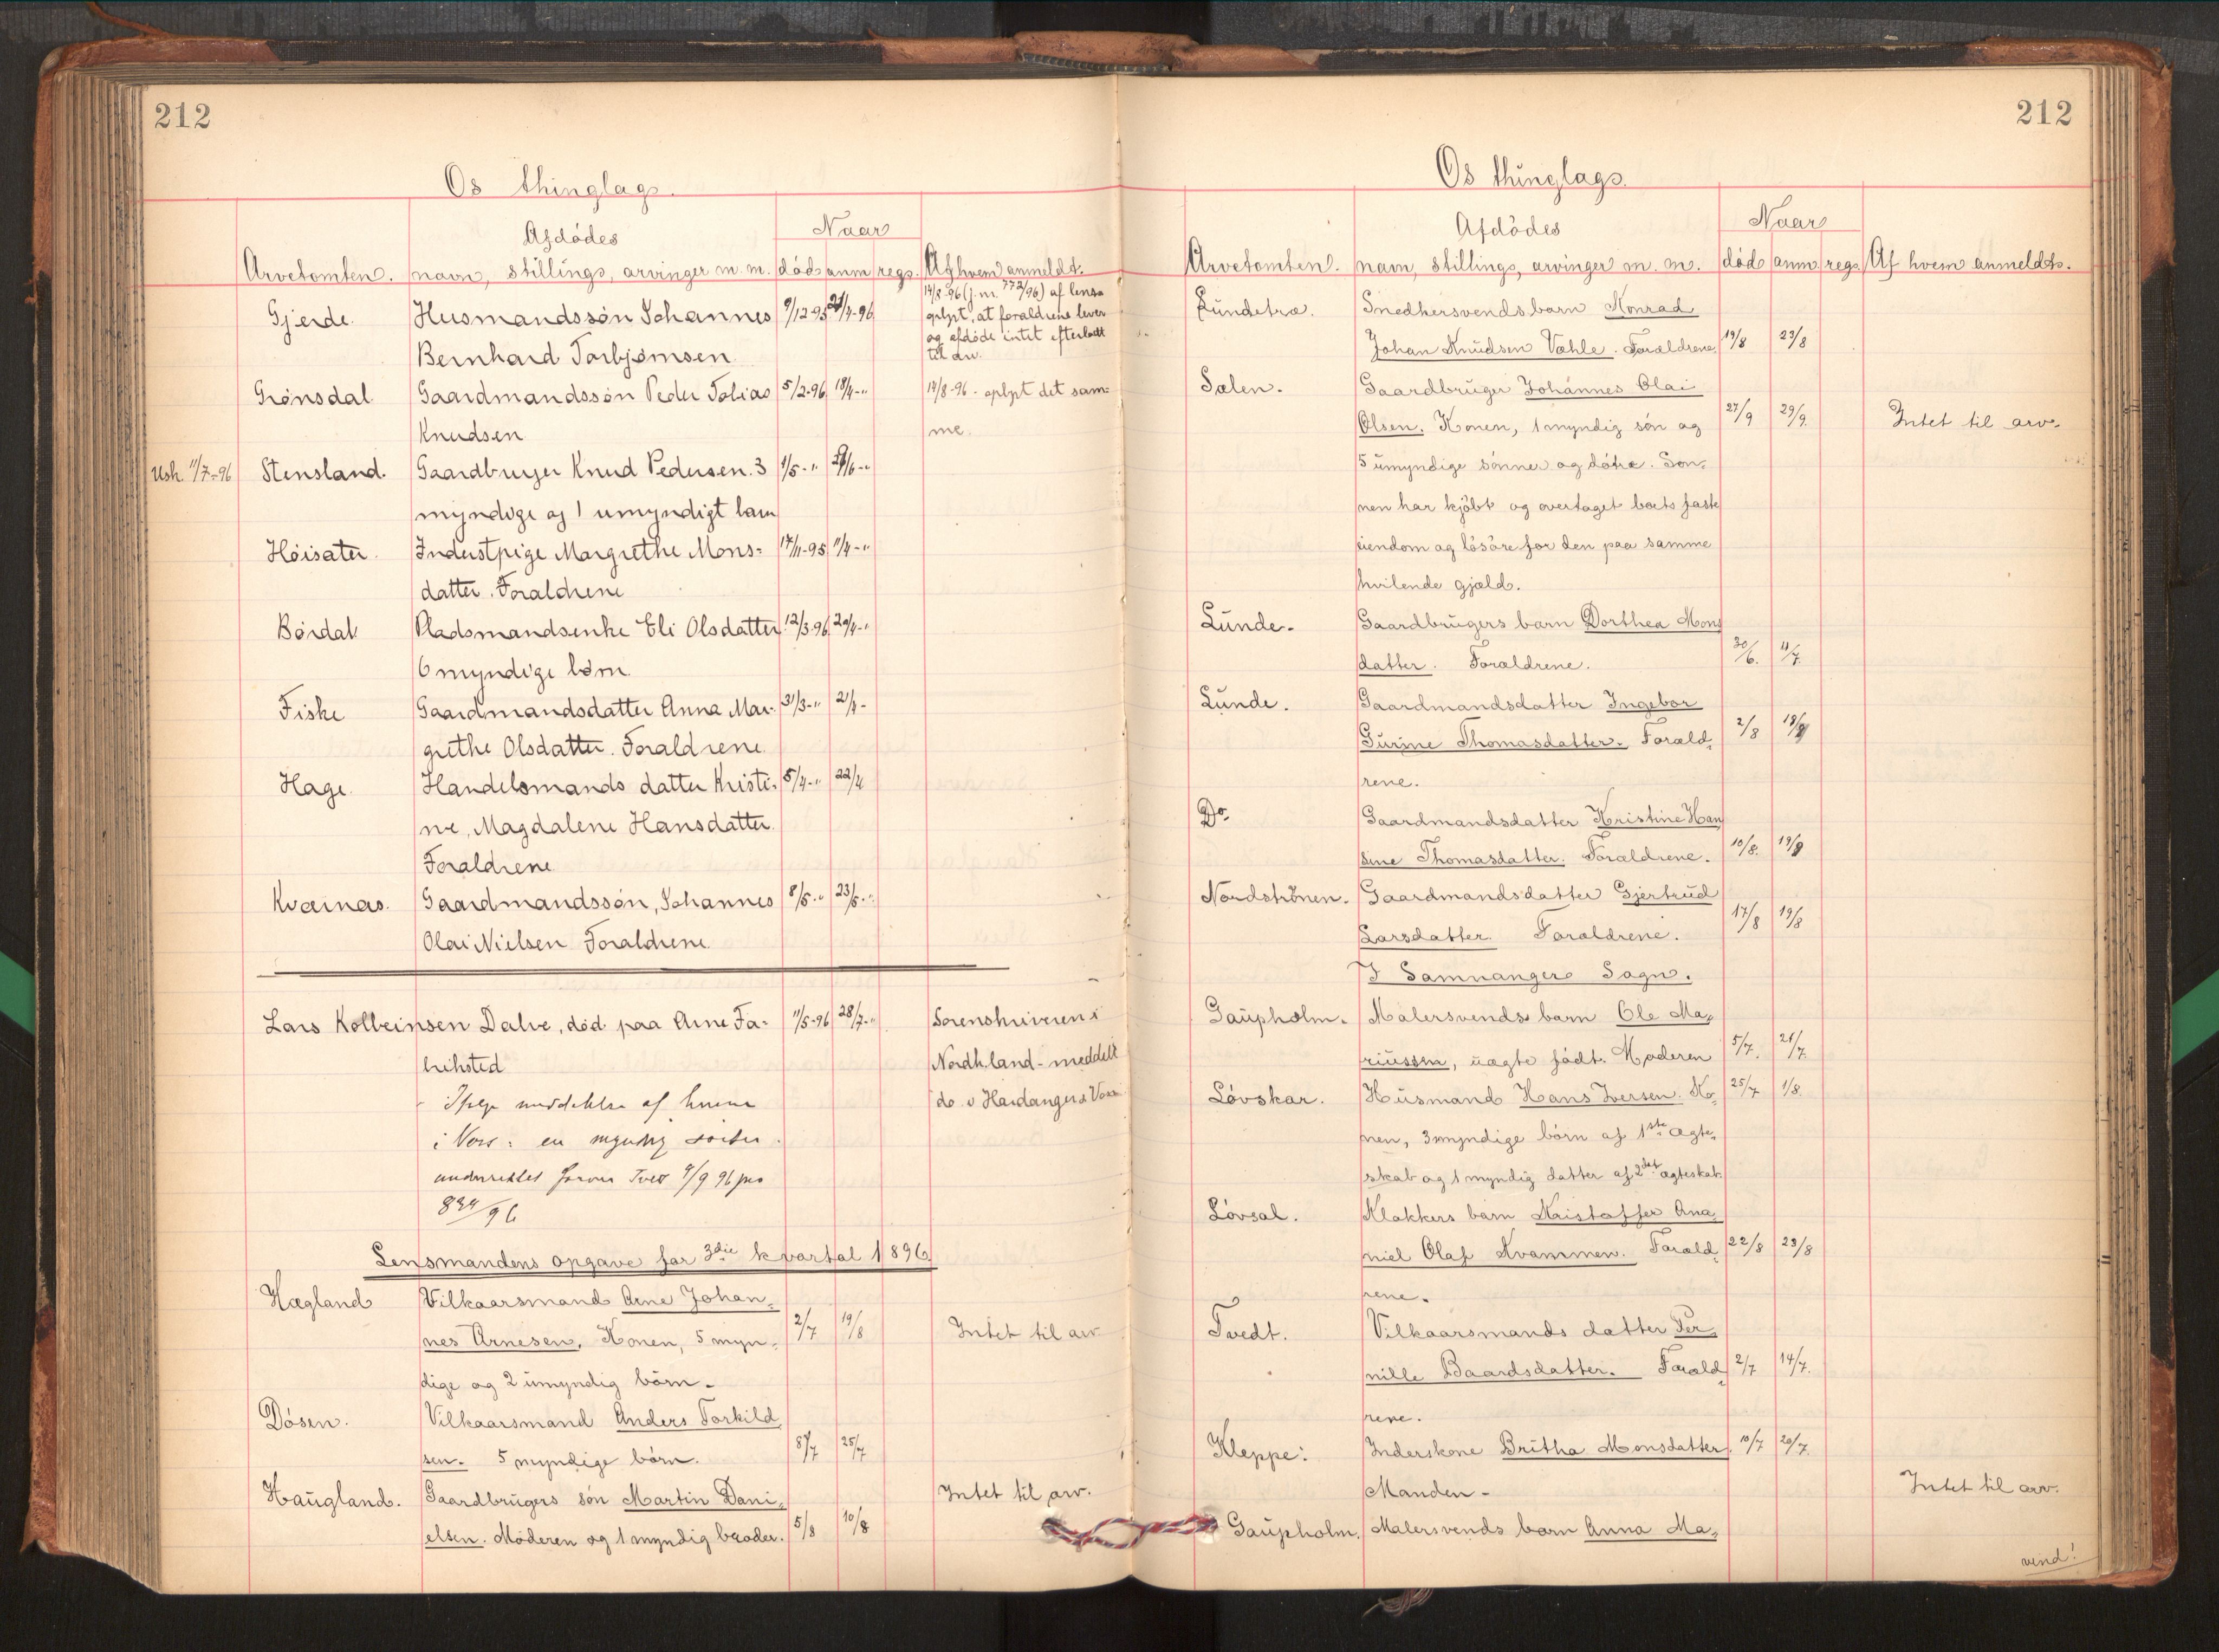 212
Os thinglag.
Afdödes
Naar
Arvetomten. navn, stillings, arvinger m. m. död anm regs. Af hvem anmeldt.
Gjerde. Husmandssön Johannes 9/12-95 21/4-96 14/8-96 (j.nr. 772/96) af lensm.
oplyst, at forældrene lever
og afdöde intet efterlodt
til arv.
Bernhard Torbjörnsen.
Grönsdal Gaardmandssön Peder Tobias 5/2-96 18/4-" 14/8-96 - oplyst det sam-
Knudsen me.
Usk. 11/7-96 Stensland. Gaardbruger Knud Pedersen. 3 1/5-"
myndige og 1 umyndigt barn
Höisæter. Inderstpige Margrethe Mons- 17/11-95 11/4-"
datter. Forældrene
Bördal Pladsmandsenke Eli Olsdatter 12/3-96 20/4-"
6 myndige börn.
Fiske Gaardmandsdatter Anna Mar- 31/3-" 21/4-
grethe Olsdatter. Forældrene
Hage. Handelsmands datter Kristi- 5/4-" 22/4
ne, Magdalene Hansdatter.
Forældrene
Kværnæs. Gaardmandssön, Johannes 8/5-" 23/5-"
Olai Nielsen Forældrene
Lars Kolbeinsen Dalve, död paa Arne Fa- 11/5-96 28/7-" Sorenskriveren i
briksted Nordh.land - meddelt
do. i Hardanger & Voss
Ifölge meddelelse af
i Voss: en myndig
underrettet 9/9 96
834/96
Lensmandens opgave for 3die kvartal 1896.
Hægland Vilkaarsmand Arne Johan-
nes Arnesen. Konen, 5 myn- 2/7 19/8 Intet til arv
dige og 2 umyndig börn.
Dösen. Vilkaarsmand Anders Torkild
sen. 5 myndige börn. 8/7 25/7
Haugland. Gaardbrugers sön Martin Dani- Intet til arv.
elsen. Moderen og 1 myndig broder. 5/8 10/8
212
Os thinglags.
Afdödes
Naar
Arvetomten. navn, stillings, arvinger m. m. död anm. regs. Af hvem anmeldt.
Lundetræ. Snedkersvends barn Konrad
Johan Knudsen Vahle. Forældrene. 19/8 29/8
Sælen. Gaardbruger Johannes Olai
Olsen. Konen, 1 myndig sön og 27/9 29/9. Intet til arv.
5 umyndige sönner og dötre. Son-
nen har kjöbt og overtaget boets faste
eiendom og lösöre for den paa samme
hvilende gjæld.
Lunde. Gaardbrugers barn Dorthea Mons
datter. Forældrene. 30/6. 11/7.
Lunde. Gaardmandsdatter Ingebor
Gurine Thomasdatter. Foræld- 2/8 19/8
rene.
Do. Gaardmandsdatter Kristine Han
sine Thomasdatter. Forældrene. 10/8. 19/8
Nordströnen. Gaardmandsdatter Gjertrud
Larsdatter. Forældrene. 17/8 19/8
I Samnanger Sogn.
Gaupholm. Malersvends barn Ole Ma-
riussen, uægte födt. Moderen 5/7. 21/7.
Lövskar. Husmand Hans Iversen. Ko- 25/7 1/8.
nen, 3 myndige börn af 1ste ægte-
skab og 1 myndig datter af 2det ægteskab.
Lövsal. Klokkers barn Kristoffer Ana-
niel Olaf Kvammen. Foræld- 22/8 23/8
rene.
Tvedt. Vilkaarsmands datter Per-
nille Baardsdatter. Foræld- 2/7 14/7.
rene.
Kleppe: Inderskone Britha Monsdatter 10/7 20/7.
Manden. Intet til arv.
Gaupholm. Malersvends barn Anna Ma-
vend!